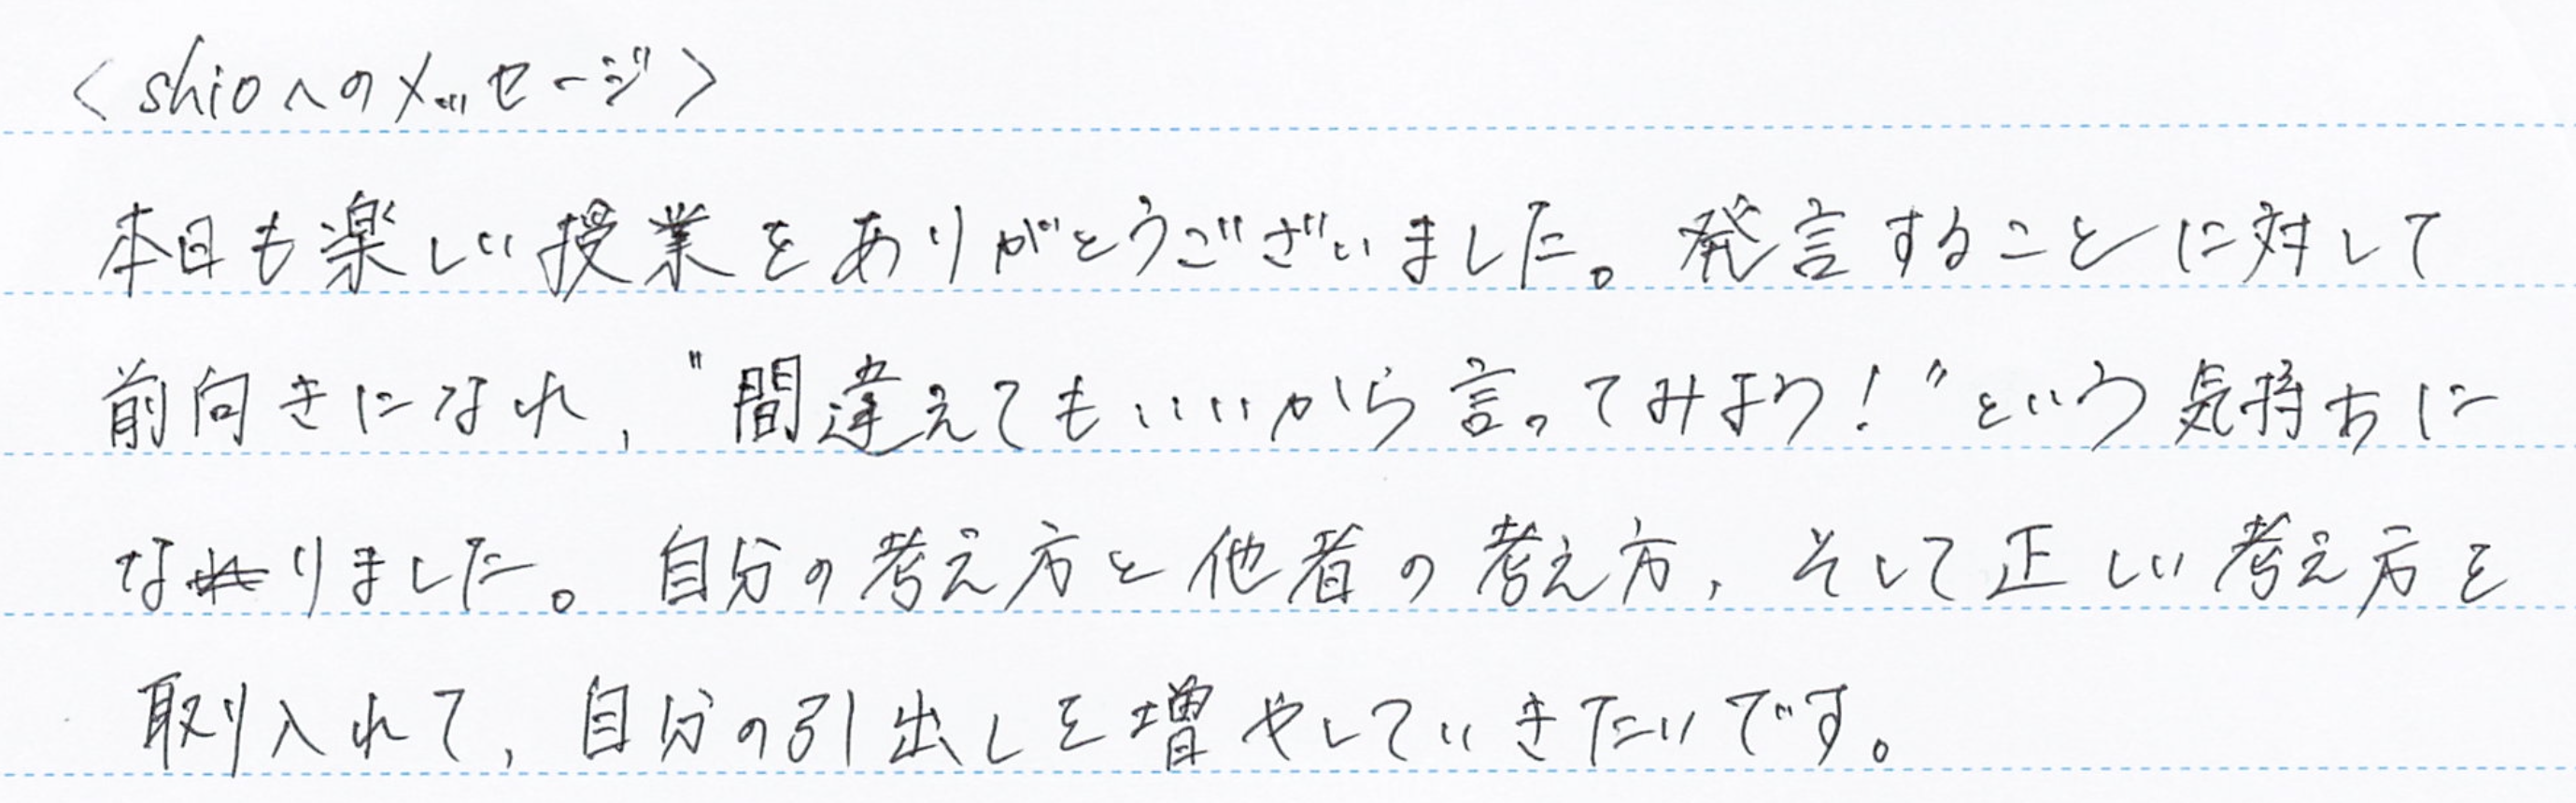 <shioへのメッセージ>
本日も楽しい授業をありがとうございました。発言することに対して
前向きになれ，"間違えてもいいから言ってみよう！"という気持ちに
なりました。自分の考え方と他者の考え方，そして正しい考え方を
取り入れて，自分の引出しを増やしていきたいです。